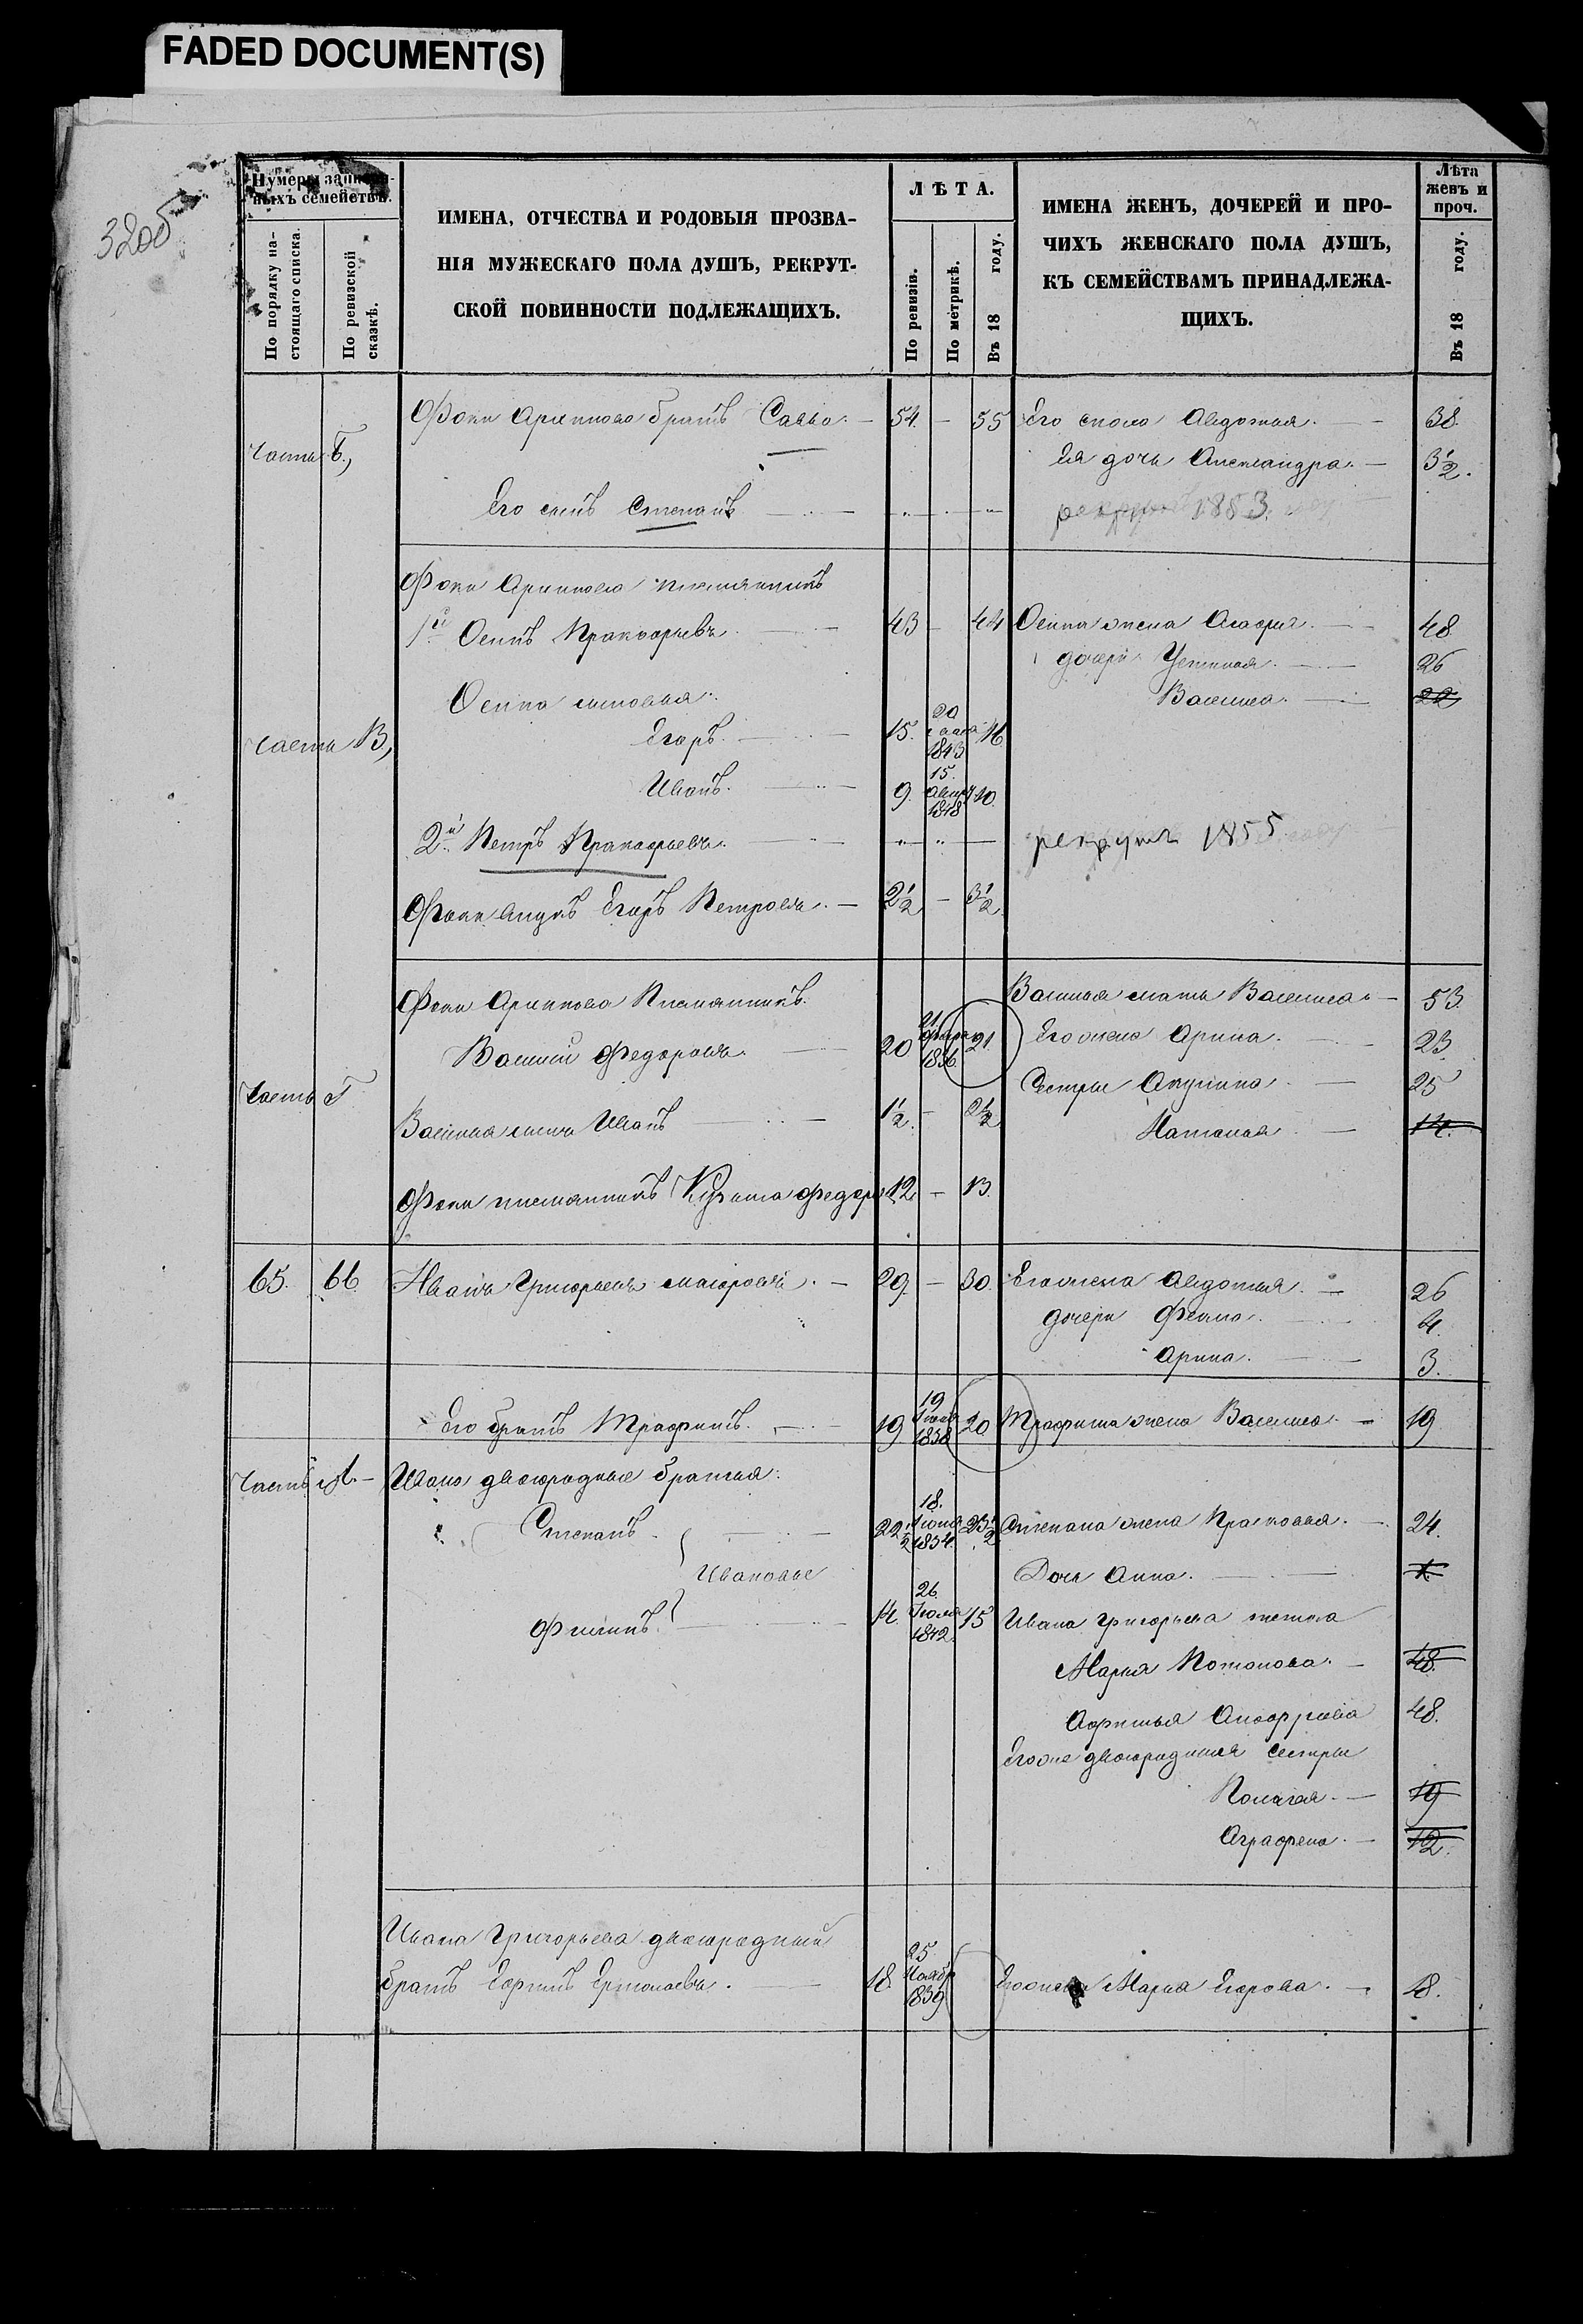 FADED DOCUMENT(S)
320об
Нумеры записанныхъ семействъ.
По порядку настоящаго списка.
По ревизской сказкѣ.
ИМЕНА, ОТЧЕСТВА И РОДОВЫЯ ПРОЗВА-
НІЯ МУЖЕСКАГО ПОЛА ДУШЪ, РЕКРУТ-
СКОЙ ПОВИННОСТИ ПОДЛЕЖАЩИХЪ.
ЛѢТА.
По ревизіи.
По метрикѣ.
Въ 18 году.
ИМЕНА ЖЕНЪ, ДОЧЕРЕЙ И ПРО-
ЧИХЪ ЖЕНСКАГО ПОЛА ДУШЪ,
КЪ СЕМЕЙСТВАМЪ ПРИНАДЛЕЖА-
ЩИХЪ.
Лѣта женъ и проч.
Въ 18 году.
Фоки Архипова братъ Савва. — 54. — 55 Его жена Авдотья. — 38.
Часть Б, Ея дочь Александра. — 3 1/2.
Его сынъ Степанъ рекрутъ 1853.
Фоки Архипова племянники
1й Осипъ Прокофьевъ. 43 — 44 Осипа жена Агафья. 48
дочери Устинья. 26
Осипа сыновья. Василиса. 22
Часть В, Егоръ. 15. 20 1843 16
Иванъ. 9. 15. Авгус 1848 10.
2й Петръ Прокофьевъ. рекрутъ 1855
Фоки внукъ Егоръ Петровъ. — 2 1/2 — 3 1/2
Фоки Архипова племянникъ Василья мать Василиса — 53.
Василий Федоровъ. 20 21 1836 21. Его жена Арина. 23
Часть Г Сестры Акулина. 25
Васильа сынъ Иванъ 1 1/2. — 2 1/2 Наталья 14.
Фоки племянникъ Кузьма Федоръ 12 — 13.
65. 66 Иванъ Григорьевъ — 29. — 30. Его жена Авдотья. — 26
дочери Фекла. 4.
Арина. 3.
Его братъ Трофимъ. — 19 19 1838 20 Трофима жена Василиса. — 19
Часть А. — Ивана двоюродные братья.
Степанъ. 22 1/2 18. Іюня 1834. 23 1/2 Степана жена Прасковья. — 24.
Ивановы Дочь Анна. 1.
Филипъ. 14. 26. Іюля 1842. 15 Ивана Григорьева тетка
Марья Потапова. — 48.
Афимья 48.
Егоже двоюродныя сестры
Пелагея. — 19
Аграфена. — 12.
Ивана Григорьева двоюродный
братъ Ефимъ Ермолаевъ. 18. 25 Ноябр 1839 Его жена Марья Егорова. — 18.